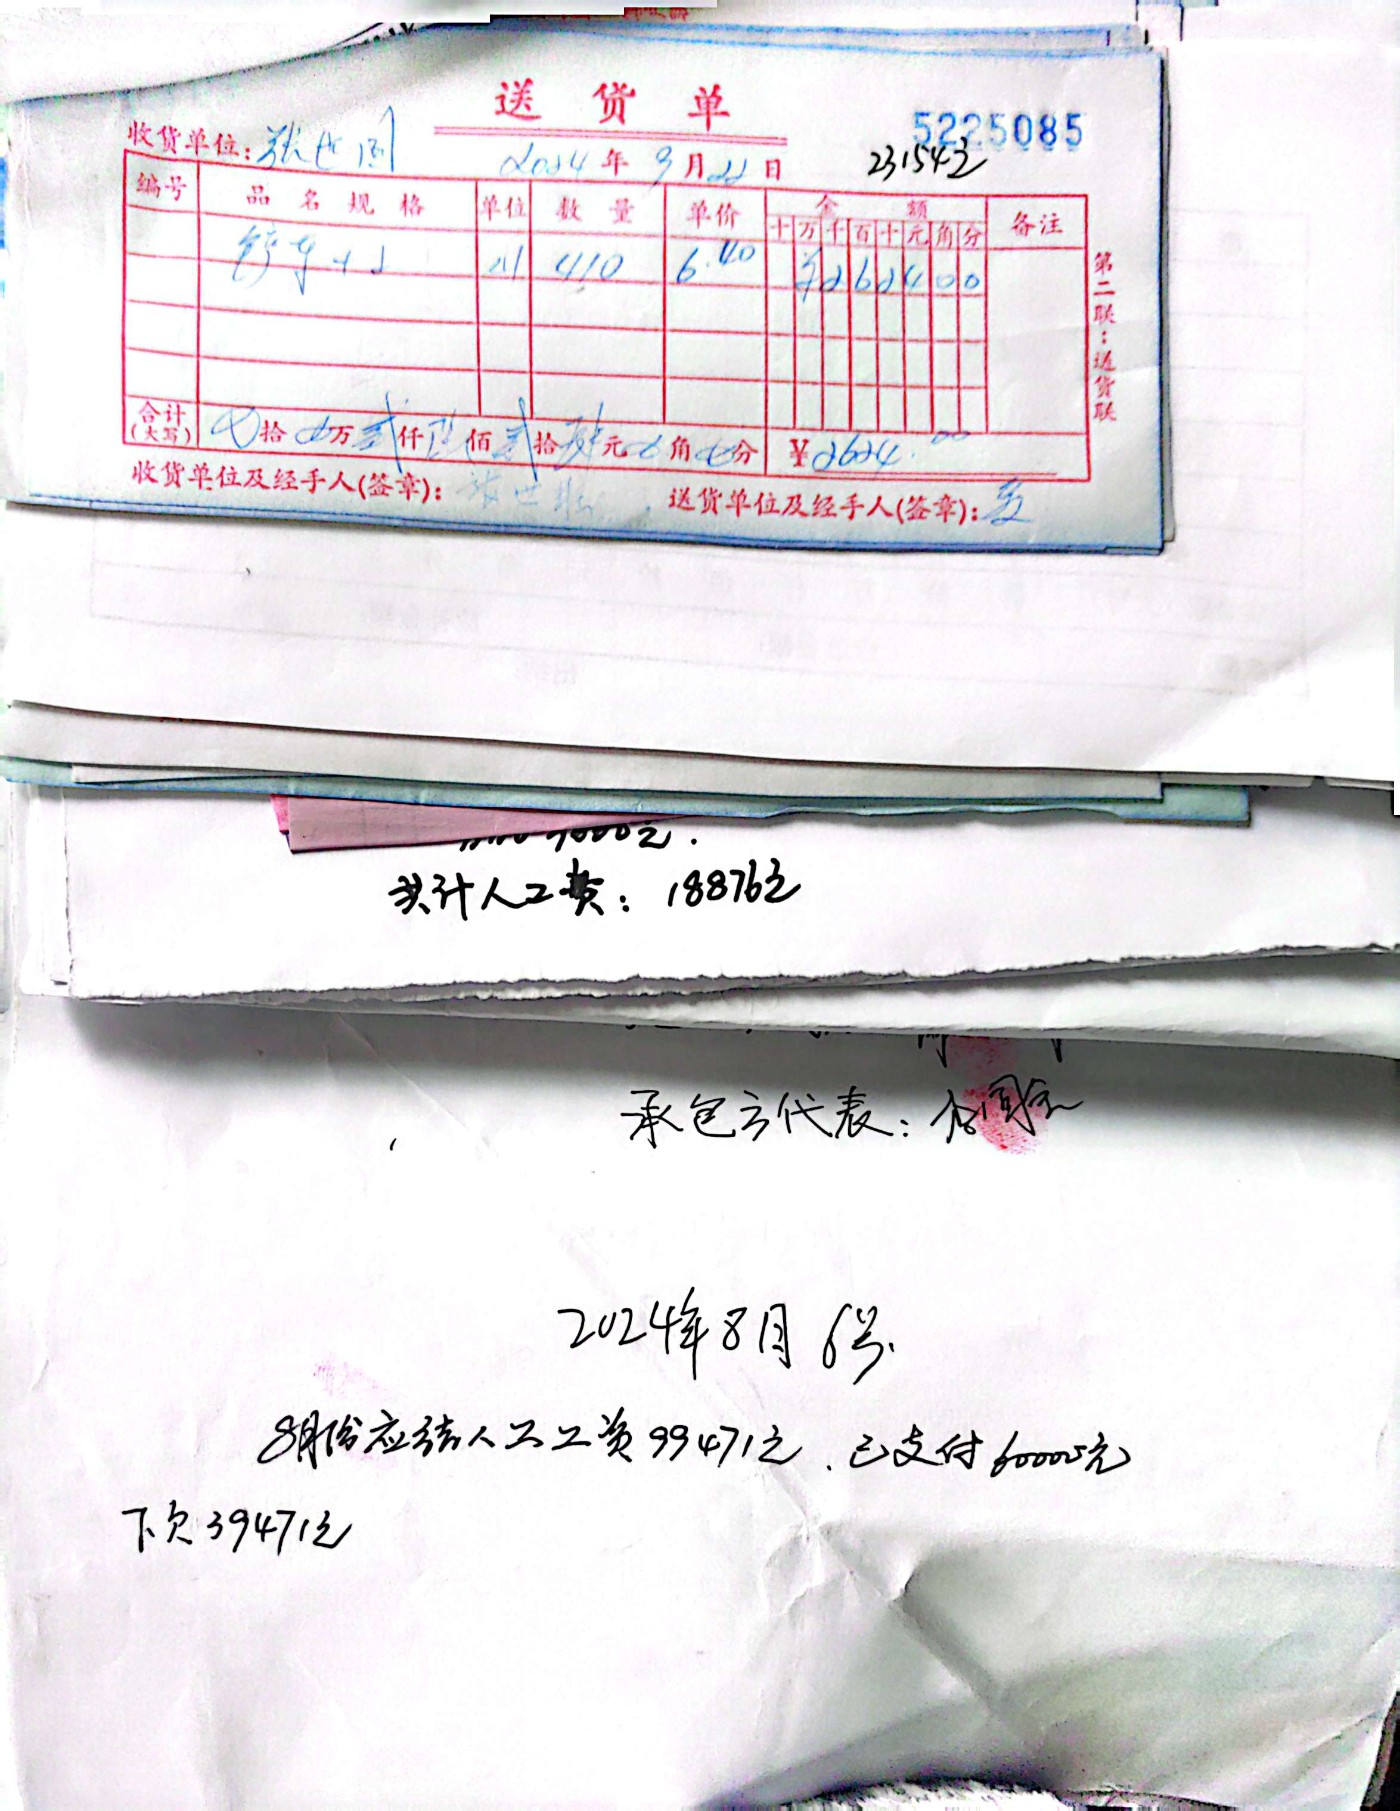 送 货 单
5225085
收货单位: 张世国
2024 年 9 月 22 日
23154元
编号 品 名 规 格 单位 数 量 单价 金 额 备注
十 万 千 百 十 元 角 分
410 6.40 ¥262400
合计(大写) 拾 万 贰 仟 陆 佰 贰 拾 肆 元 角 分 ¥2624.00
收货单位及经手人(签章): 张世 送货单位及经手人(签章):
第二联:送货联
9000元.
共计人工费: 18876元
承包方代表:
2024年8月6号.
8月份应结人工工资99471元. 已支付60000元
下欠39471元